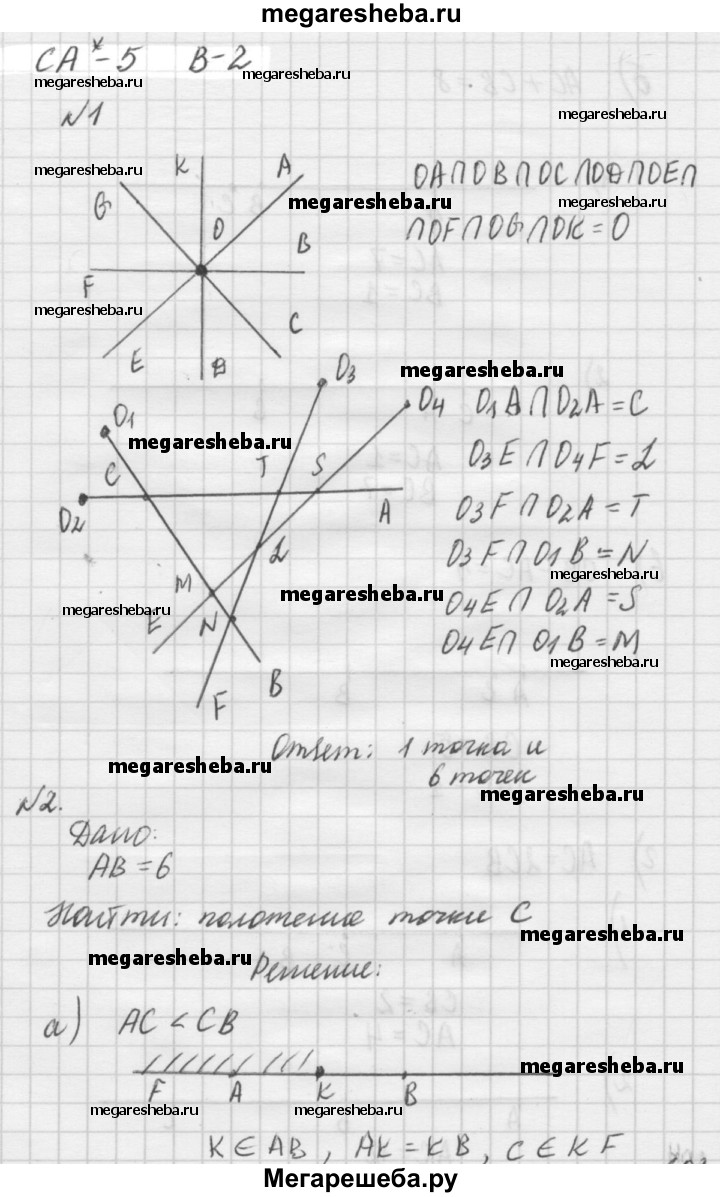 megaresheba.ru
СА*-5 В-2
megaresheba.ru megaresheba.ru
№1
K A
OA∩OB∩OC∩OD∩OE∩
megaresheba.ru
G
megaresheba.ru
O
B
∩OF∩OG∩OK=O
megaresheba.ru
F
megaresheba.ru
C
E D
O3
megaresheba.ru
O1
O4
megaresheba.ru
O1B∩O2A=C
C T S
O3E∩O4F=L
O2 A
O3F∩O2A=T
L
O3F∩O1B=N
megaresheba.ru
M
megaresheba.ru
megaresheba.ru
O4E∩O2A=S
E N
O4E∩O1B=M
megaresheba.ru
B
F
Ответ: 1 точка и
6 точек
megaresheba.ru
megaresheba.ru
№2.
Дано:
AB=6
Найти: положение точки C
megaresheba.ru
megaresheba.ru
Решение:
а) AC<CB
megaresheba.ru
F A K B
megaresheba.ru megaresheba.ru
K∈AB, AK=KB, C∈KF
Мегарешеба.ру